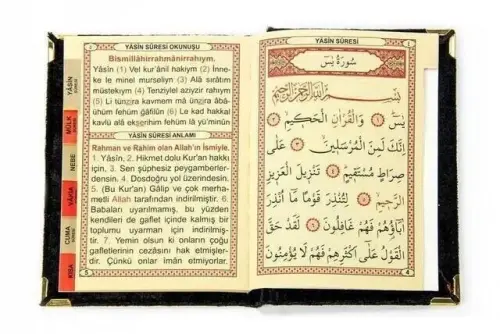 YÂSİN SÛRESİ OKUNUŞU
Bismillâhirrahmânirrahıym.
Yâsîn (1) Vel kur'ânil hakiym (2) İnne-
ke le minel murseliyn (3) Alâ sırâtım
müstekıym (4) Tenziylel aziyzir rahıym
(5) Li tünzira kavmem mâ ünzira âbâ-
ühüm fehüm ğâfilûn (6) Le kad hakkal
kavlü alâ ekserihim fehüm lâ yü'minûn
YÂSİN SÛRESİ ANLAMI
Rahman ve Rahim olan Allah'ın İsmiyle.
1. Yâsîn, 2. Hikmet dolu Kur'an hakkı
için, 3. Sen şüphesiz peygamberler-
densin. 4. Dosdoğru yol üzerindesin.
5. (Bu Kur'an) Gâlip ve çok merha-
metli Allah tarafından indirilmiştir. 6.
Babaları uyarılmamış, bu yüzden
kendileri de gaflet içinde kalmış bir
toplumu uyarman için indirilmiş-
tir. 7. Yemin olsun ki onların çoğu
gafletlerinin cezasını hak etmişler-
dir. Çünkü onlar iman etmiyorlar.
5
YÂSİN
MÜLK
NEBE
VÂKIA
CUMA
KISA
YÂSİN SÛRESİ
سُورَةُ يٰسٓ
بِسْمِ اللّٰهِ الرَّحْمٰنِ الرَّحِيمِ
يٰسٓ ﴿١﴾ وَالْقُرْاٰنِ الْحَكِيمِ ﴿٢﴾
اِنَّكَ لَمِنَ الْمُرْسَلِينَ ﴿٣﴾ عَلٰى
صِرَاطٍ مُسْتَقِيمٍ ﴿٤﴾ تَنْزِيلَ الْعَزِيزِ
الرَّحِيمِ ﴿٥﴾ لِتُنْذِرَ قَوْمًا مَٓا اُنْذِرَ
اٰبَٓاؤُ۬هُمْ فَهُمْ غَافِلُونَ ﴿٦﴾ لَقَدْ حَقَّ
الْقَوْلُ عَلٰٓى اَكْثَرِهِمْ فَهُمْ لَا يُؤْمِنُونَ
4